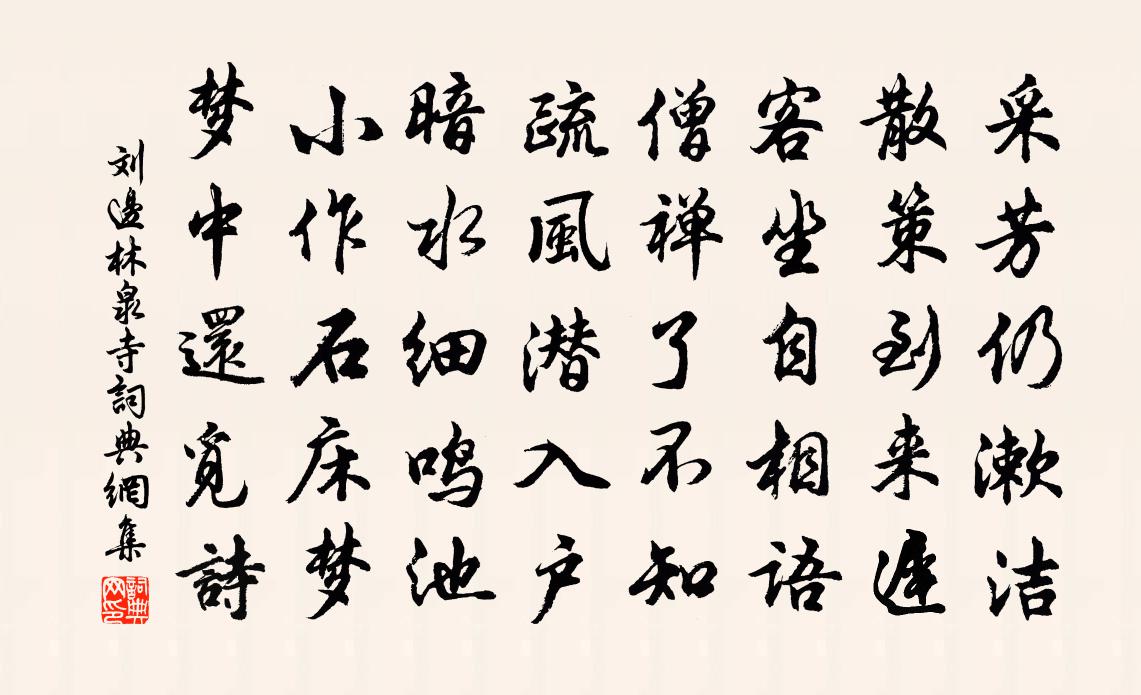 采芳仍漱洁
散策到来遲
客坐自相语
僧禅了不知
疏風潜入户
暗水细鸣池
小作石床梦
梦中還觅詩
刘邊林泉寺詞典網集
詞典网印